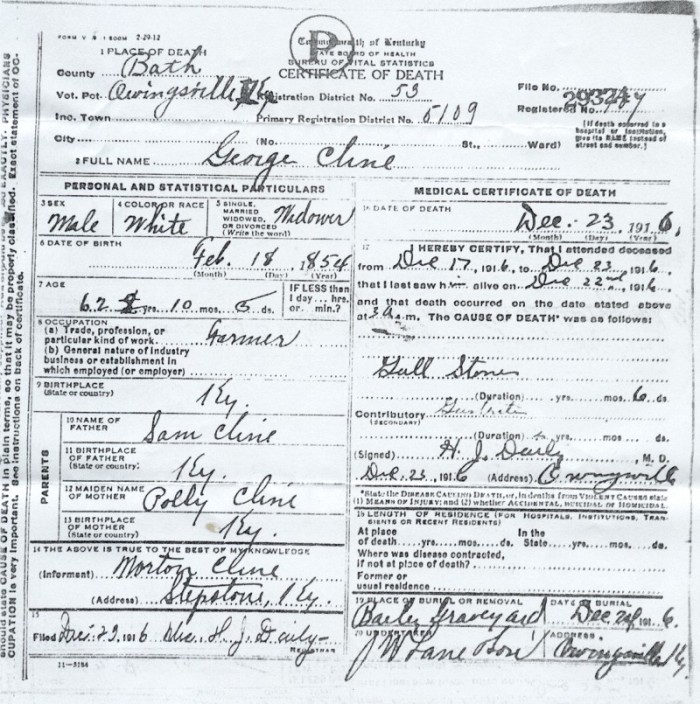 FORM V S 1 500M 2-29-12
P
Commonwealth of Kentucky
STATE BOARD OF HEALTH
BUREAU OF VITAL STATISTICS
CERTIFICATE OF DEATH
1 PLACE OF DEATH
County Bath
Vot. Pct. Owingsville Registration District No. 53
File No. 29324
Inc. Town Primary Registration District No. 5109
Registered No.
(If death occurred in a
hospital or institution,
give its NAME instead of
street and number.)
City (No. St., Ward)
2 FULL NAME George Cline
PERSONAL AND STATISTICAL PARTICULARS
3 SEX
Male
4 COLOR OR RACE
White
5 SINGLE,
MARRIED
WIDOWED,
OR DIVORCED
(Write the word)
Widower
6 DATE OF BIRTH
Feb. 18 1854
(Month) (Day) (Year)
7 AGE
62 yrs. 10 mos. 5 ds.
IF LESS than
1 day... hrs.
or min.?
8 OCCUPATION
(a) Trade, profession, or
particular kind of work Farmer
(b) General nature of industry
business or establishment in
which employed (or employer)
9 BIRTHPLACE
(State or country) Ky.
PARENTS
10 NAME OF
FATHER Sam Cline
11 BIRTHPLACE
OF FATHER
(State or country) Ky.
12 MAIDEN NAME
OF MOTHER Polly Cline
13 BIRTHPLACE
OF MOTHER
(State or country) Ky.
14 THE ABOVE IS TRUE TO THE BEST OF MY KNOWLEDGE
(Informent) Morton Cline
(Address) Stepstone, Ky.
15
Filed Dec. 23, 1916 H. J. Daily
REGISTRAR
11-3184
MEDICAL CERTIFICATE OF DEATH
16 DATE OF DEATH
Dec. 23, 1916.
(Month) (Day) (Year)
17 I HEREBY CERTIFY, That I attended deceased
from Dec 17, 1916, to Dec 23, 1916,
that I last saw h alive on Dec 22nd, 1916,
and that death occurred on the date stated above
at 3 a.m. The CAUSE OF DEATH* was as follows:
Gall Stones
(Duration) yrs. mos. 6 ds.
Contributory
(SECONDARY)
(Duration) yrs. mos. ds.
(Signed) H. J. Daily M. D.
Dec. 23, 1916 (Address) Owingsville
*State the DISEASE CAUSING DEATH, or, in deaths from VIOLENT CAUSES state
(1) MEANS OF INJURY; and (2) whether ACCIDENTAL, SUICIDAL OR HOMICIDAL.
18 LENGTH OF RESIDENCE (FOR HOSPITALS, INSTITUTIONS, TRAN-
SIENTS OR RECENT RESIDENTS)
At place In the
of death yrs. mos. ds. State yrs. mos. ds.
Where was disease contracted,
if not at place of death?
Former or
usual residence
19 PLACE OF BURIAL OR REMOVAL
Graveyard
DATE OF BURIAL
Dec 24 1916.
20 UNDERTAKER
J W Lane Son
ADDRESS
Owingsville Ky.
should state CAUSE OF DEATH in plain terms, so that it may be properly classified. Exact statement of OC-
CUPATION is very important. See instructions on back of certificate.
EXACTLY. PHYSICIANS